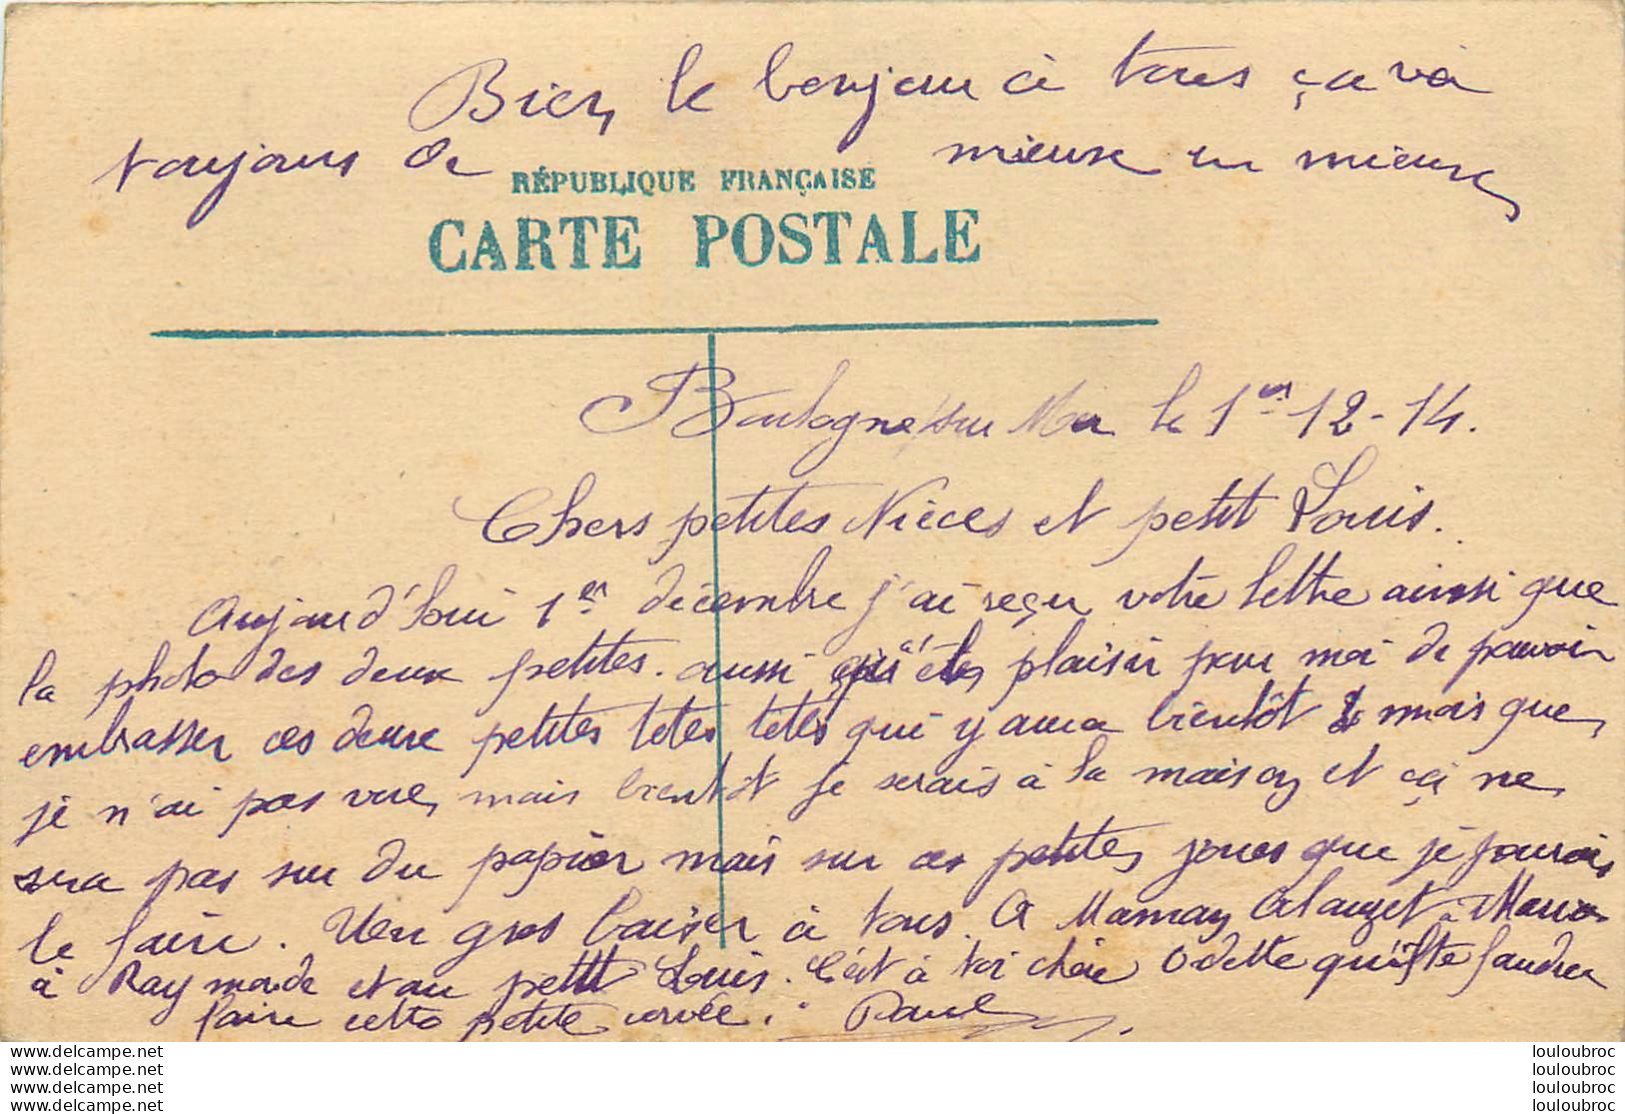 Bien le bonjour à tous ça va
toujours de mieux en mieux
RÉPUBLIQUE FRANÇAISE
CARTE POSTALE
Boulogne/sur Mer le 1er 12-14.
Chers petites Nièces et petit Louis.
Aujourd'hui 1er décembre j'ai reçu votre lettre ainsi que
la photo des deux petites. aussi plaisir pour moi de pouvoir
embrasser ces deux petites tetes tetes qui y aura bientôt mois que
je n'ai pas vue, mais bientôt je serais à la maison et ça ne
sera pas sur du papier mais sur ces petites joues que je pourais
le faire. Un gros baiser à tous. A Maman à
à Raymonde et au petit Louis. C'est à toi chère Odette qu'il te faudra
faire cette petite corvée. Paul
www.delcampe.net
www.delcampe.net
www.delcampe.net
www.delcampe.net
louloubroc
louloubroc
louloubroc
louloubroc